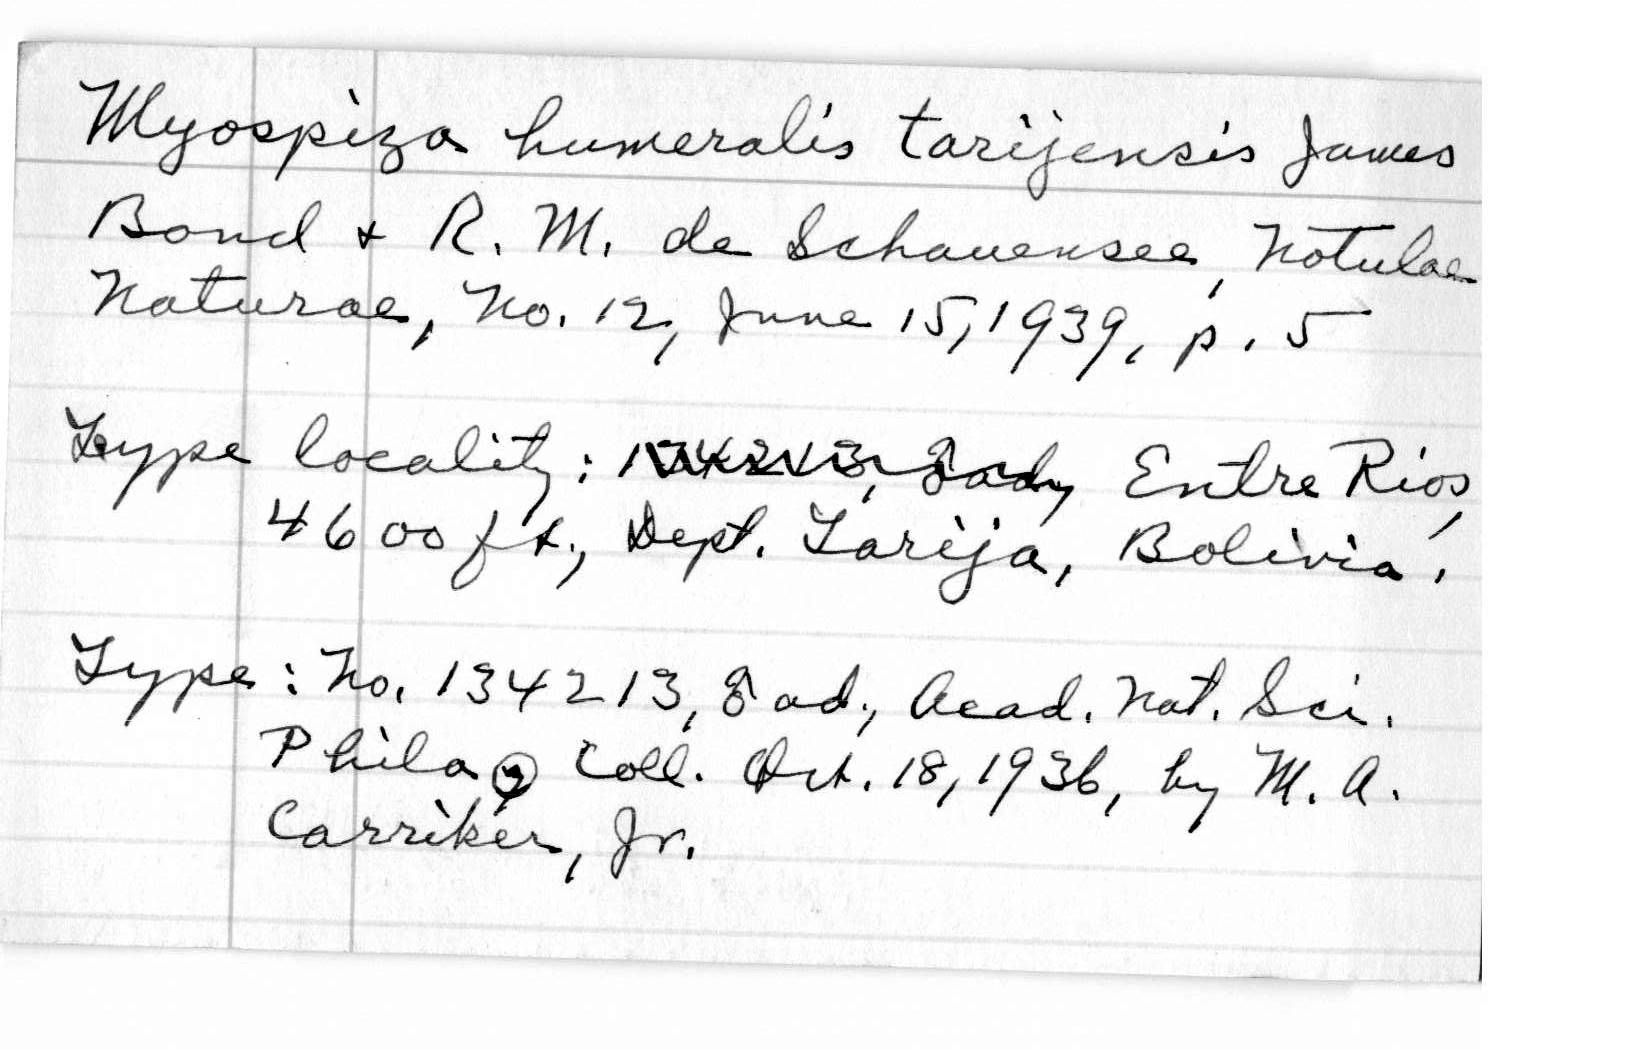 Myospiza humeralis tarijensis James
Bond & R. M. de Schauensee, Notulae
Naturae, No. 12, June 15, 1939, p. 5
Type locality: 134213, ♂ ad., Entre Rios,
4600 ft., Dept. Tarija, Bolivia.
Type: No. 134213, ♂ ad., Acad. Nat. Sci.
Phila., Coll. Oct. 18, 1936, by M. A.
Carriker, Jr.